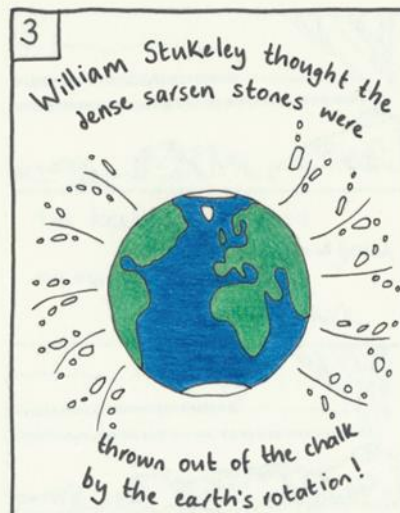 3
William Stukeley thought the
dense sarsen stones were
thrown out of the chalk
by the earth's rotation!